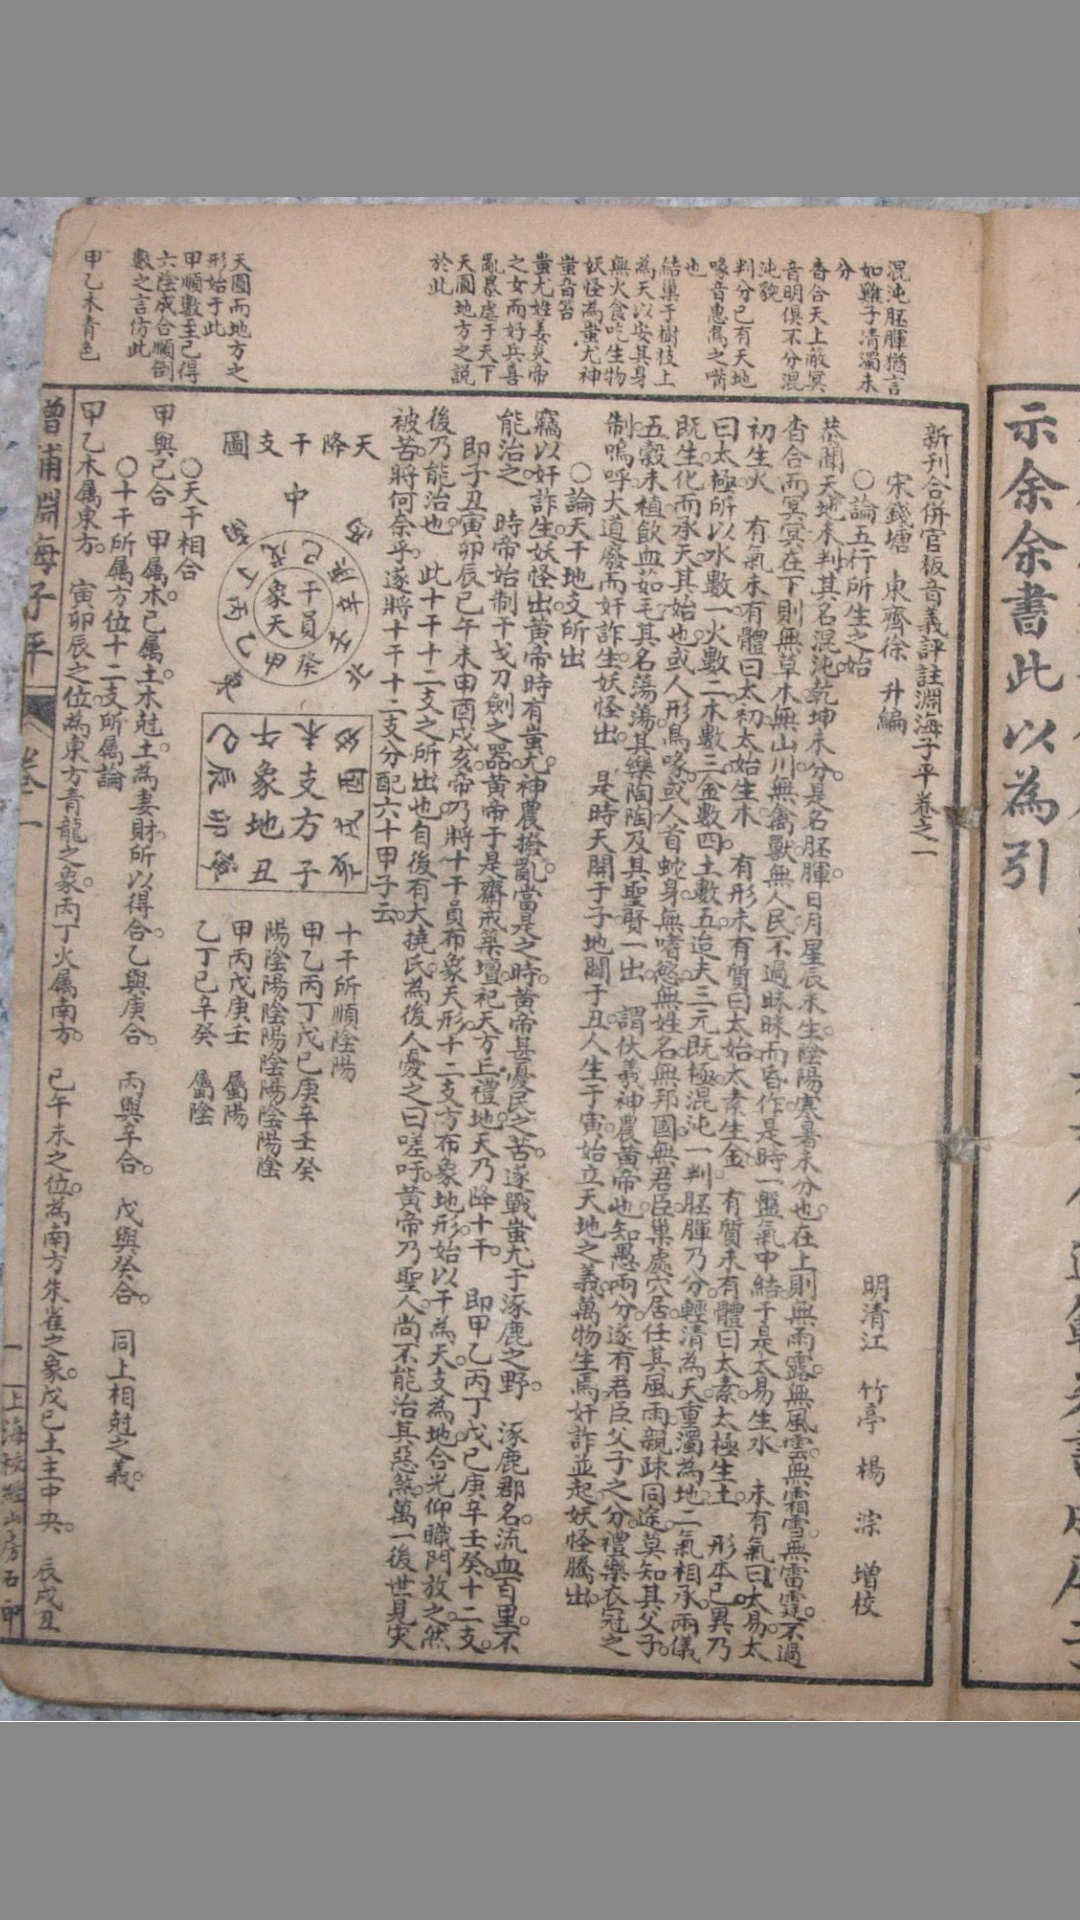 示余余書此以為引
新刊合併官板音義評註淵海子平卷之一
宋錢塘 東齋徐 升編
明清江 竹亭 楊 淙 增校
○論五行所生之始
恭聞天地未判其名混沌乾坤未分是名胚腪日月星辰未生陰陽寒暑未分也在上則無雨露無風雲無霜雪無雷霆不過
杳合而冥冥在下則無草木無山川無禽獸無人民不過昧昧而昏作是時一盤氣中結于是太易生水 未有氣曰太易太
初生火 有氣未有體曰太初太始生木 有形未有質曰太始太素生金 有質未有體曰太素太極生土 形本已異乃
曰太極所以水數一火數二木數三金數四土數五迨夫三元既極混沌一判胚腪乃分輕清為天重濁為地二氣相承兩儀
既生化而承天其始也或人形鳥喙或人首蛇身無嗜慾無姓名無邦國無君臣巢處穴居任其風雨親疎同途莫知其父子
五穀未植飲血茹毛其名蕩蕩其樂陶陶及其聖賢一出 謂伏羲神農黃帝也知愚兩分遂有君臣父子之分禮樂衣冠之
制嗚呼大道廢而奸詐生妖怪出 是時天開于子地闢于丑人生于寅始立天地之義萬物生焉奸詐並起妖怪騰出
○論天干地支所出
竊以奸詐生妖怪出黃帝時有蚩尤神農擾亂當是之時黃帝甚憂民之苦遂戰蚩尤于涿鹿之野 涿鹿郡名流血百里不
能治之 時帝始制干戈刀劍之器黃帝于是齋戒築壇祀天方丘禮地天乃降十干 即甲乙丙丁戊己庚辛壬癸十二支
即子丑寅卯辰巳午未申酉戌亥帝乃將十干員布象天形十二支方布象地形始以干為天支為地合光仰職門放之然
後乃能治也 此十干十二支之所出也自後有大撓氏為後人憂之曰嗟吁黃帝乃聖人尚不能治其惡煞萬一後世見灾
被苦將何奈乎遂將十干十二支分配六十甲子云
天降干支圖
中
干員
象天
癸
甲
乙
丙
丁
戊
己
支方
象地
子
丑
卯
辰
巳
午
未
十干所順陰陽
甲乙丙丁戊己庚辛壬癸
陽陰陽陰陽陰陽陰陽陰
甲丙戊庚壬 屬陽
乙丁己辛癸 屬陰
○天干相合
甲與己合 甲屬木己屬土木尅土為妻財所以得合乙與庚合 丙與辛合 戊與癸合 同上相尅之義
○十干所屬方位十二支所屬論
甲乙木屬東方 寅卯辰之位為東方青龍之象丙丁火屬南方 巳午未之位為南方朱雀之象戊己土主中央 辰戌丑
混沌胚腪猶言
如雞子清濁未
分
杳合天上敵冥
音明俱不分混
沌貌
判分已有天地
喙音惠鳥之嘴
也
結巢于樹枝上
為天以安其身
無火食吃生物
妖怪為蚩尤神
蚩音笞
蚩尤姓姜炎帝
之女而好兵喜
亂暴虐于天下
天圓地方之説
於此
天圓而地方之
形始于此
甲順數至己得
六陰成合順倒
數之言仿此
甲乙木青色
增補淵海子平 卷一
一 上海校經山房石印